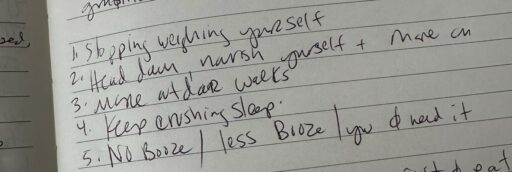 1. Stopping weighing yourself
2. Head down nurish yourself + move on
3. more outdoor walks
4. Keep crushing sleep.
5. No Booze / less Booze / you need it